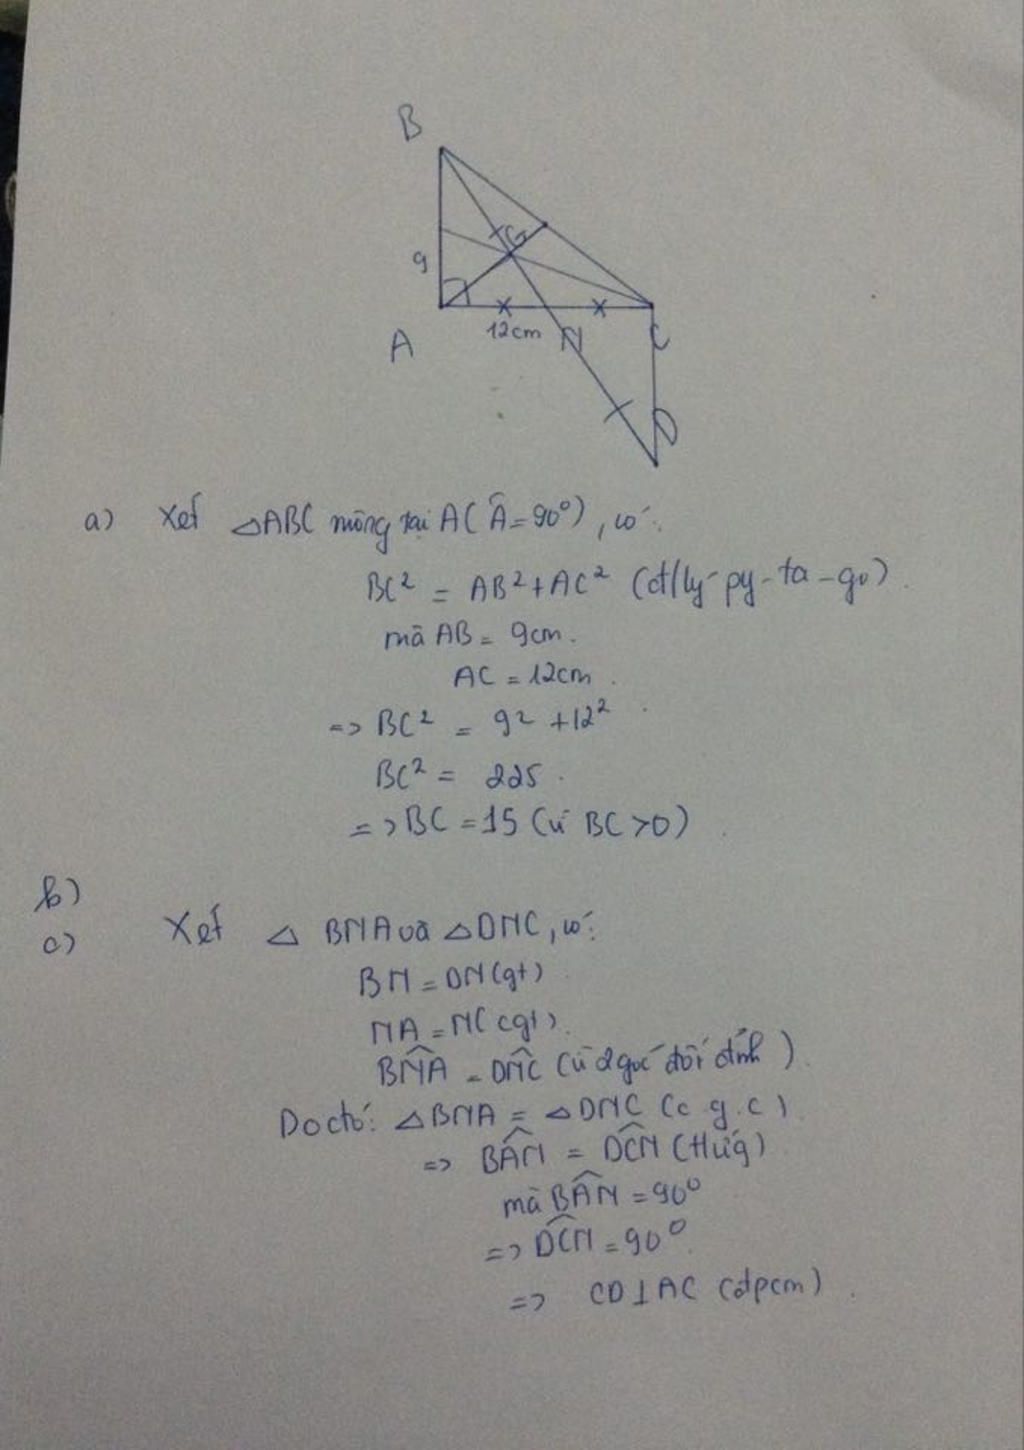 B
G
9
12cm
A
N
C
D
a) Xét △ABC vuông tại A( Â = 90⁰), có:
BC² = AB² + AC² (đ/lý - py - ta - go).
mà AB = 9cm.
AC = 12cm.
=> BC² = 9² + 12²
BC² = 225.
=> BC = 15 (vì BC > 0)
b)
c) Xét △ BNA và △DNC, có:
BN = DN (gt)
NA = NC (gt).
BN̂A = DN̂C (vì 2 góc đối đỉnh).
Do đó: △BNA = △DNC (c.g.c)
=> BÂN = DĈN (tứ/g)
mà BÂN = 90⁰
=> DĈN = 90⁰.
=> CD⊥AC (đpcm).